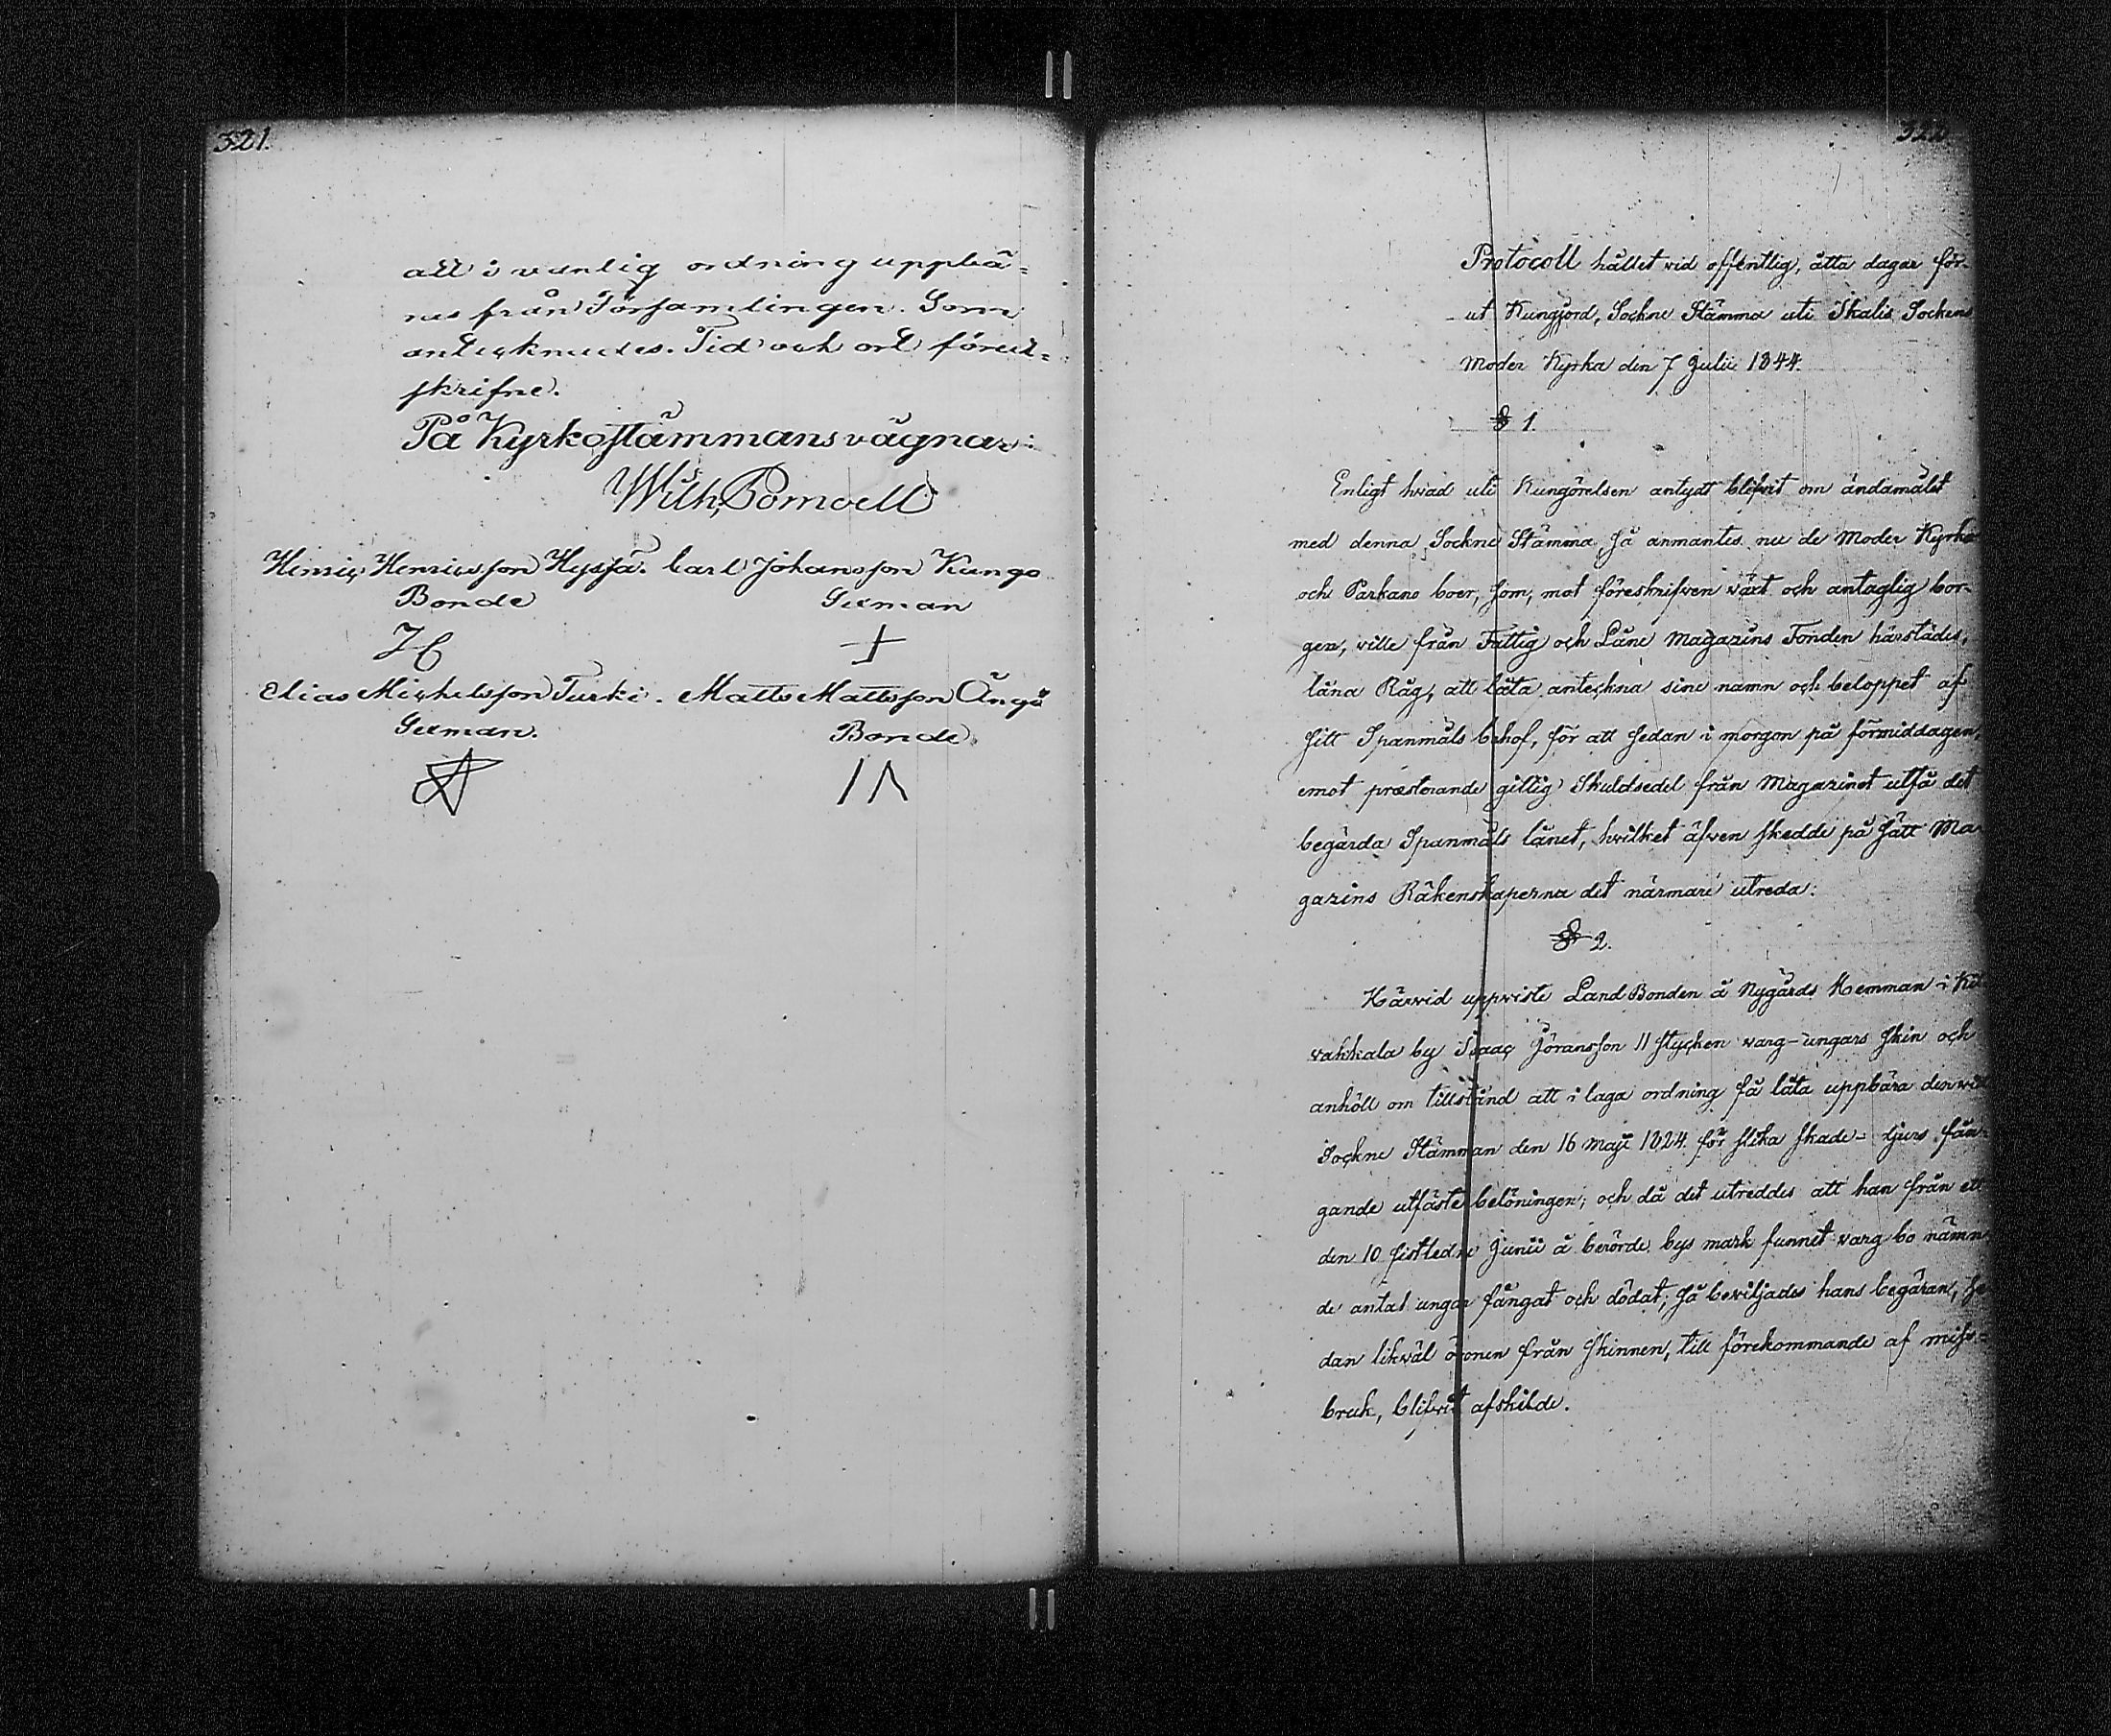 321.
att i vanlig ordning uppbä-
res från Församlingen. Som
antecknades. Tid och ort förut-
skrifne.
På Kyrkostämmans vägnar:
Wilh. Pomoell
Henric Henricsson Hyssä. Carl Johansson Kango
Bonde
Sexman
Elias Michelsson Turki. Matts Mattsson Ängö
Sexman.
Bonde.
Protocoll hållet vid offentlig, åtta dagar för-
ut Kungjord, Sockne Stämma uti Ikalis Sockens
Moder Kyrka den 7 Julii 1844.
§ 1.
Enligt hvad uti Kungörelsen antydt blifvit om ändamålet
med denna Sockne Stämma, så anmantes nu de Moder Kyrko
och Parkano boer, som, mot föreskrifven växt och antaglig bor-
gen, ville från Fattig och Låne Magazins Fonden härstädes,
låna Råg, att låta anteckna sine namn och beloppet af
sitt Spanmåls behof, för att sedan i morgon på förmiddagen,
emot præsterande giltig Skuldsedel från Magazinet utfå det
begärda Spanmåls lånet, hvilket äfven skedde på sätt Ma-
gazins Räkenskaperna det närmare utreda.
§ 2.
Härvid uppviste Land Bonden å Nygårds Hemman i
vakkala by Isaac Jöransson 11 stycken varg-ungars skin och
anhöll om tillstånd att i laga ordning få låta uppbära den vid
Sockne Stämman den 16 Maji 1824 för slika skade-djurs fån-
gande utfäste belöningen; och då det utreddes att han från ett
den 10 sistledne Junii å berörde bys mark funnet varg bo nämn-
de antal ungar fångat och dödat; så beviljades hans begäran, se-
dan likväl öronen från skinnen, till förekommande af miss-
bruk, blifvit afskilde.